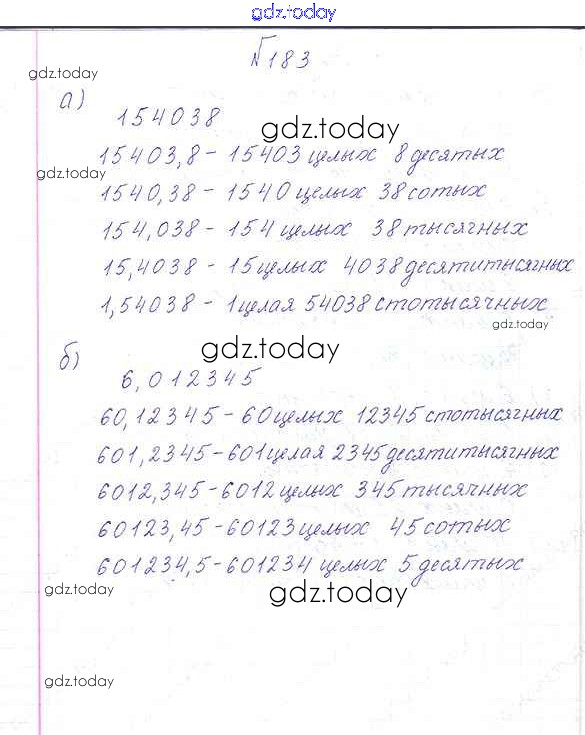 gdz.today
№183
gdz.today
а)
154038
gdz.today
15403,8 - 15403 целых 8 десятых
gdz.today
1540,38 - 1540 целых 38 сотых
154,038 - 154 целых 38 тысячных
15,4038 - 15 целых 4038 десятитысячных
1,54038 - 1 целая 54038 стотысячных
gdz.today
gdz.today
б)
6,012345
60,12345 - 60 целых 12345 стотысячных
601,2345 - 601 целая 2345 десятитысячных
6012,345 - 6012 целых 345 тысячных
60123,45 - 60123 целых 45 сотых
601234,5 - 601234 целых 5 десятых
gdz.today
gdz.today
gdz.today